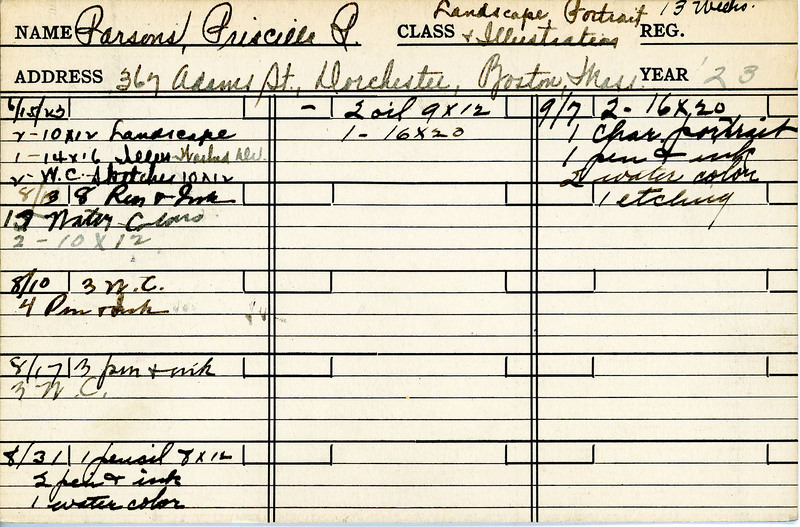 NAME Parsons, Priscilla P. CLASS Landscape, Portrait & Illustration REG. 13 Weeks.
ADDRESS 367 Adams St., Dorchester, Boston, Mass. YEAR '23
6/15/23
2-10x12 Landscape
1-14x16 Illus- Washed
2- W.C. Sketches 10x12
8/3 8 Pen & Ink
Water Colors
2-10x12
8/10 3 W.C.
4 Pen & Ink
8/17 3 pen & ink
3 W.C.
8/31 1 pencil 8x12
2 pen & ink
1 water color
- 2 oil 9x12
1-16x20
9/7 2-16x20
1 Char. portrait
1 pen & ink
2 water color
1 etching